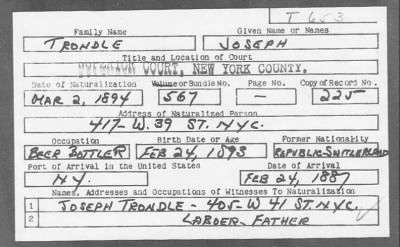 T 653
Family Name Given Name or Names
TRONDLE JOSEPH
Title and Location of Court
SUPERIOR COURT, NEW YORK COUNTY.
Date of Naturalization Volume or Bundle No. Page No. Copy of Record No.
MAR 2, 1894 567 — 225
Address of Naturalized Person
417- W. 39 ST. N.Y.C.
Occupation Birth Date or Age Former Nationality
BEER BOTTLER FEB 24, 1873 REPUBLIC-SWITZERLAND
Port of Arrival in the United States Date of Arrival
N.Y. FEB 24, 1887
Names, Addresses and Occupations of Witnesses To Naturalization
1 JOSEPH TRONDLE - 405- W 41 ST. N.Y.C.
2 LABOER- FATHER